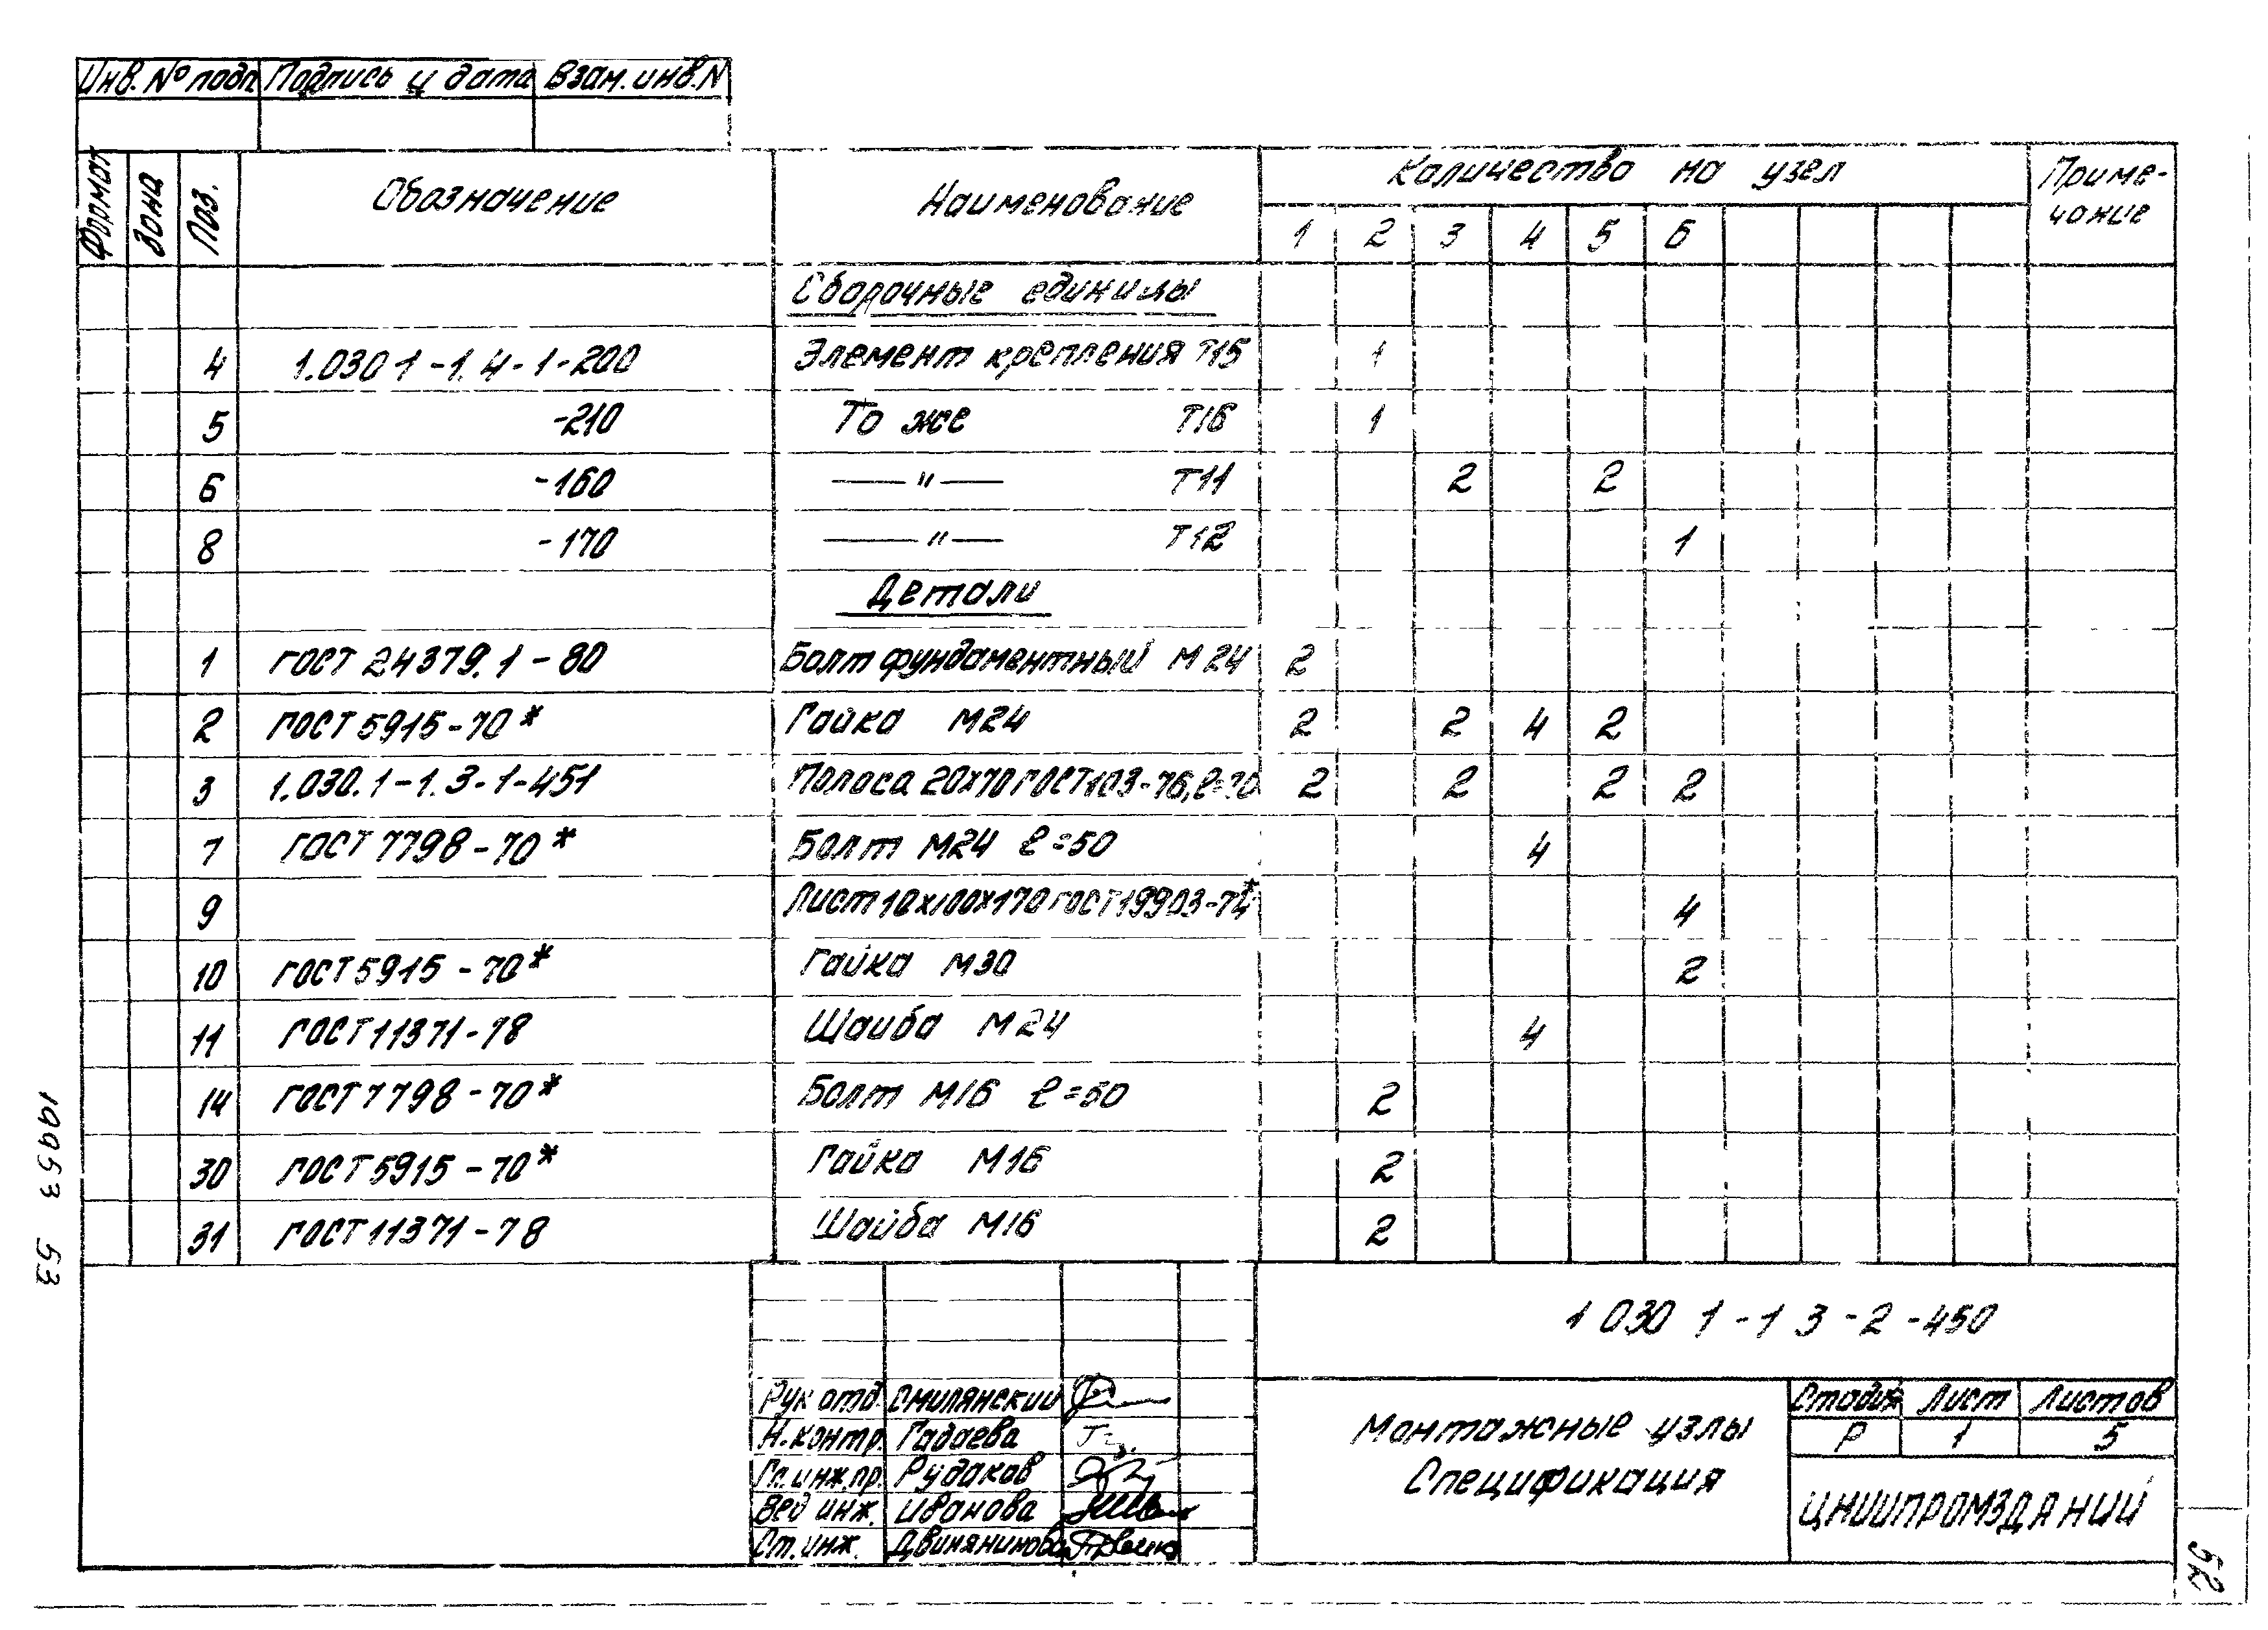 Инв. № подл. Подпись и дата Взам. инв. N
Формат Зона Поз. Обозначение Наименование Количество на узел Приме-
чание
1 2 3 4 5 6
Сборочные единицы
4 1.030 1-1. 4-1-200 Элемент крепления Т15 1
5 -210 То же Т16 1
6 -160 —"— Т11 2 2
8 -170 —"— Т12 1
Детали
1 ГОСТ 24379.1-80 Болт фундаментный М24 2
2 ГОСТ 5915-70* Гайка М24 2 2 4 2
3 1.030.1-1.3-1-451 Полоса 20х70 ГОСТ 103-76, ℓ=70 2 2 2 2
7 ГОСТ 7798-70* Болт М24 ℓ=50 4
9 Лист 10х100х170 ГОСТ 19903-74* 4
10 ГОСТ 5915-70* Гайка М30 2
11 ГОСТ 11371-78 Шайба М24 4
14 ГОСТ 7798-70* Болт М16 ℓ=50 2
30 ГОСТ 5915-70* Гайка М16 2
31 ГОСТ 11371-78 Шайба М16 2
1 030 1-1 3-2-450
Рук отд. Смилянский
Н. контр. Гадаева
Гл. инж. пр. Рудаков
Вед инж. Иванова
Ст. инж. Двинянинова
Монтажные узлы
Спецификация
Стадия Лист Листов
Р 1 5
ЦНИИПРОМЗДАНИЙ
19953 53
52